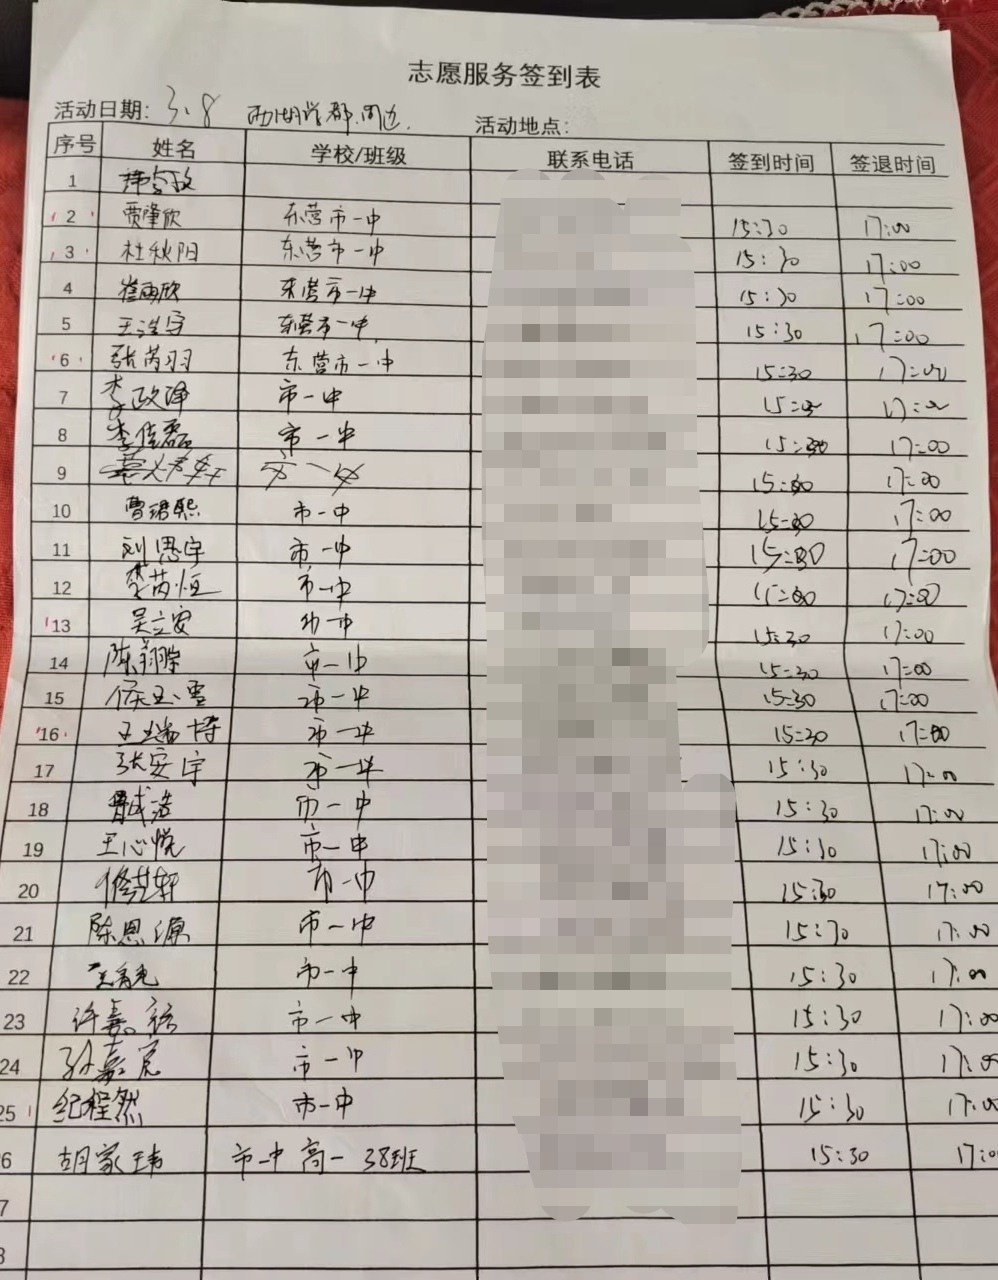 志愿服务签到表
活动日期: 3.8 西湖学都.周边. 活动地点:
序号 姓名 学校/班级 联系电话 签到时间 签退时间
1
2 贾肇欣 东营市一中 15:30 17:00
3 杜秋阳 东营市一中 15:30 17:00
4 崔雨欣 东营市一中 15:30 17:00
5 王浩宇 东营市一中 15:30 17:00
6 张芮羽 东营市一中 15:30 17:00
7 李政泽 市一中 15:30 17:00
8 李佳磊 市一中 15:30 17:00
9 市一中 15:30 17:00
10 曹珺熙 市一中 15:30 17:00
11 刘思宇 市一中 15:30 17:00
12 李芮恒 市一中 15:30 17:00
13 吴立安 市一中 15:30 17:00
14 陈 市一中 15:30 17:00
15 市一中 15:30 17:00
16 王瑞博 市一中 15:30 17:00
17 张安宇 市一中 15:30 17:00
18 市一中 15:30 17:00
19 王心悦 市一中 15:30 17:00
20 修艺轩 市一中 15:30 17:00
21 陈恩源 市一中 15:30 17:00
22 市一中 15:30 17:00
23 许嘉 市一中 15:30 17:00
24 孙嘉 市一中 15:30 17:00
25 纪程然 市一中 15:30 17:00
6 胡家玮 市一中 高一 38班 15:30 17:0
7
8